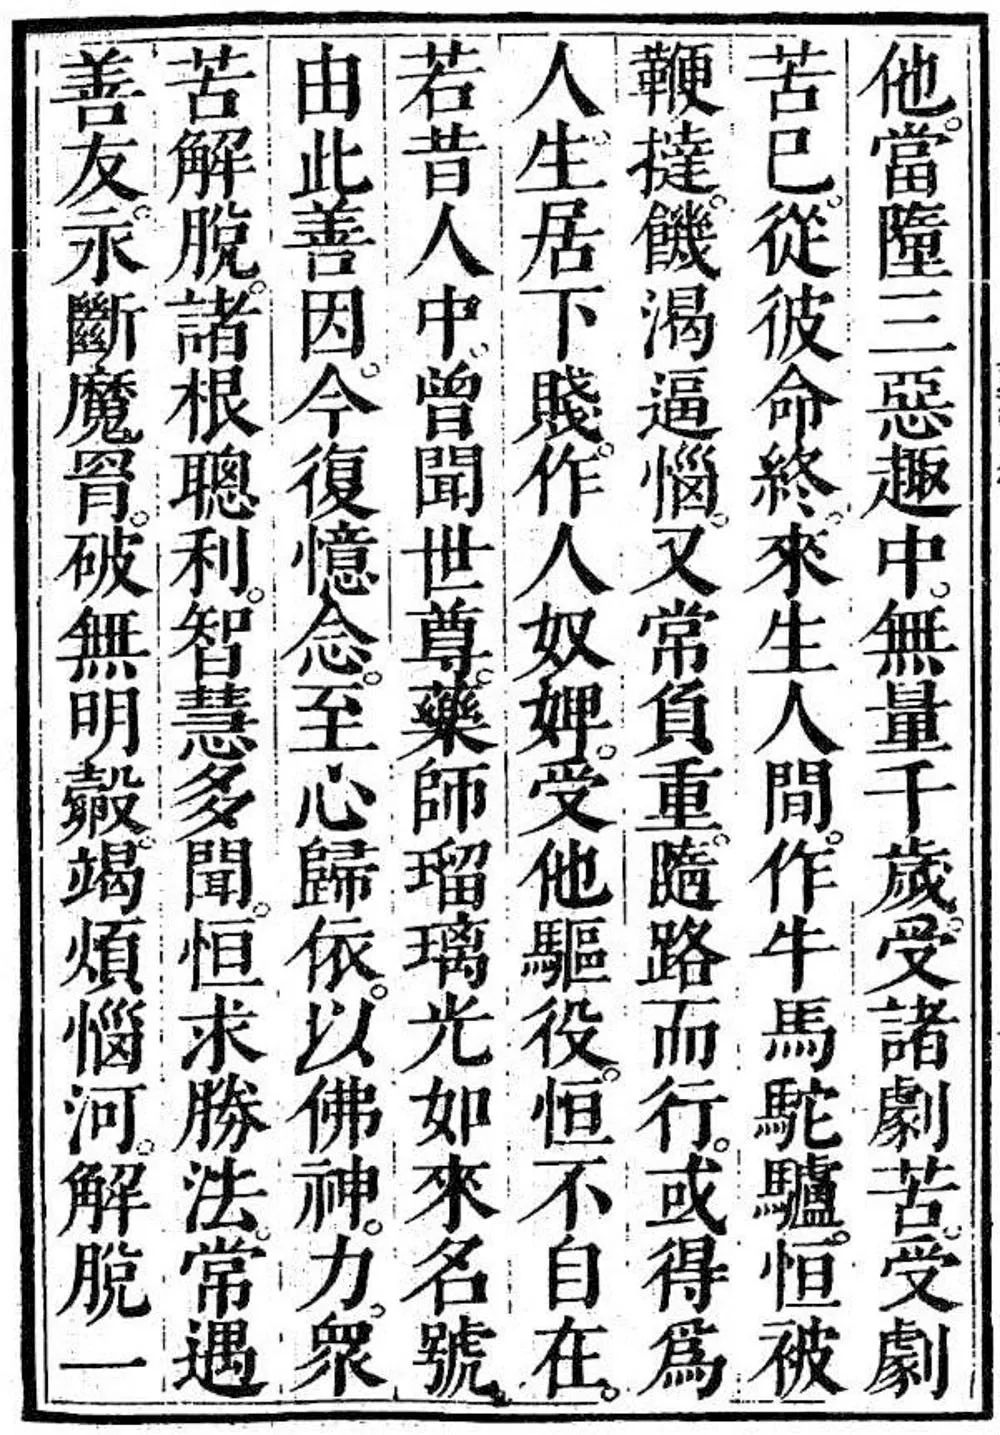 他。當墮三惡趣中。無量千歲。受諸劇苦。受劇
苦已。從彼命終。來生人間。作牛馬駝驢。恒被
鞭撻。饑渴逼惱。又常負重。隨路而行。或得爲
人。生居下賤。作人奴婢。受他驅役。恒不自在。
若昔人中。曾聞世尊。藥師瑠璃光如來名號。
由此善因。今復憶念。至心歸依。以佛神力。衆
苦解脫。諸根聰利。智慧多聞。恒求勝法。常遇
善友。永斷魔罥。破無明㲉。竭煩惱河。解脫一